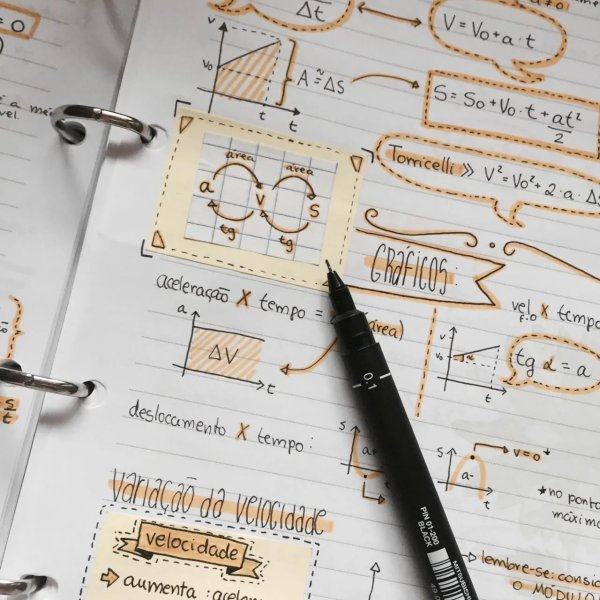 = 0
Δt
V = Vo + a · t
v
Vo
t
t
A ≈̃ ΔS
S = So + Vo · t + at²
2
Torricelli >> V² = Vo² + 2 · a · ΔS
área
área
a
V
S
tg
tg
GRÁFICOS:
aceleração X tempo =
área)
a
ΔV
t
vel X tempo
v
Vo
t
tg α = a
0.1
deslocamento X tempo:
S
a+
S
a-
t
V=0*
*no ponto
máximo
variação da velocidade
velocidade
aumenta : aceler
lembre-se: consid
O MÓDULO
PIN 01-200
BLACK
MITSUBISHI
S
t